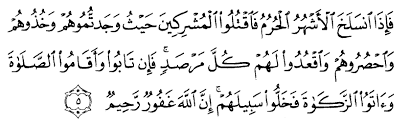 فَإِذَا ٱنسَلَخَ ٱلْأَشْهُرُ ٱلْحُرُمُ فَٱقْتُلُوا۟ ٱلْمُشْرِكِينَ حَيْثُ وَجَدتُّمُوهُمْ وَخُذُوهُمْ
وَٱحْصُرُوهُمْ وَٱقْعُدُوا۟ لَهُمْ كُلَّ مَرْصَدٍ ۚ فَإِن تَابُوا۟ وَأَقَامُوا۟ ٱلصَّلَوٰةَ
وَءَاتَوُا۟ ٱلزَّكَوٰةَ فَخَلُّوا۟ سَبِيلَهُمْ ۚ إِنَّ ٱللَّهَ غَفُورٌ رَّحِيمٌ ٥